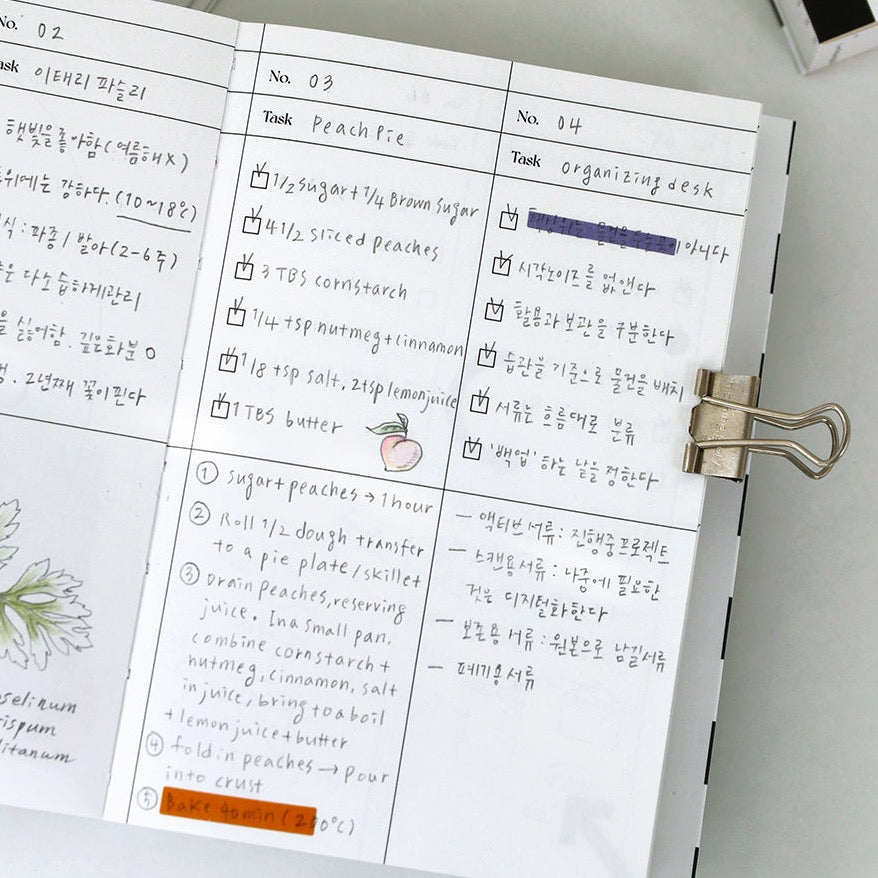 No. 02
Task 이태리 파슬리
햇빛을좋아함(여름해X)
위에는 강하다.(10~18℃)
식: 파종/발아(2-6주)
다소 습하게관리
싫어함. 깊은화분 O
2년째 꽃이핀다
No. 03
Task Peach Pie
1/2 sugar + 1/4 Brown sugar
4 1/2 sliced peaches
3 TBS cornstarch
1/4 tsp nutmeg + cinnamon
1/8 tsp salt, 2tsp lemonjuice
1 TBS butter
① sugar + peaches → 1 hour
② Roll 1/2 dough transfer
to a pie plate/skillet
③ Drain peaches, reserving
juice. In a small pan,
combine cornstarch +
nutmeg, cinnamon, salt
in juice, bring to a boil
+ lemon juice + butter
④ fold in peaches → pour
into crust
⑤ Bake 40min (200℃)
No. 04
Task organizing desk
책상위는 물건을 아니다
시각노이즈를 없앤다
활용과 보관을 구분한다
습관을 기준으로 물건을 배치
서류는 흐름대로 분류
'백업' 하는 날을 정한다
- 액티브 서류: 진행중프로젝트
- 스캔용서류: 나중에 필요한
것은 디지털화한다
- 보존용 서류: 원본으로 남길서류
- 폐기용서류